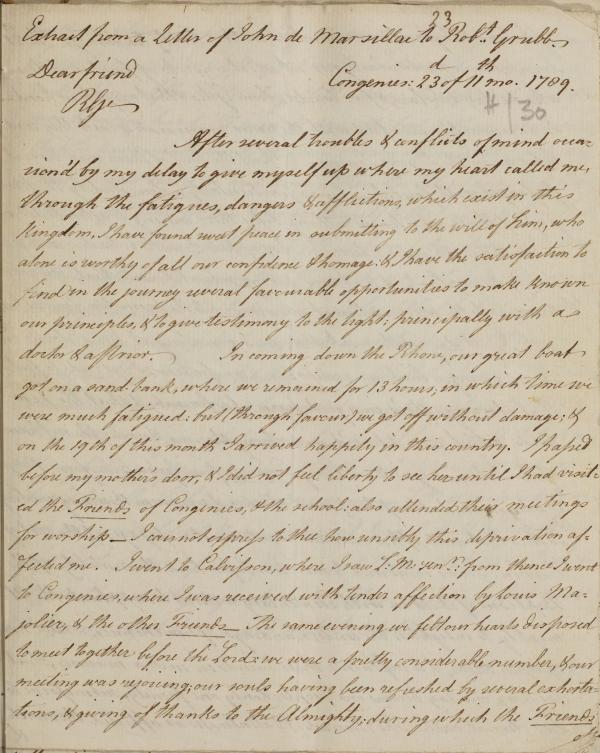 33
Extract from a Letter of John de Marsillac to Robt. Grubb.
Dear friend
Congenies: 23d of 11th mo. 1789.
H/30
After several troubles & conflicts of mind occa-
sion'd by my delay to give myself up where my heart called me,
through the fatigues, dangers & afflictions, which exist in this
Kingdom, I have found sweet peace in submitting to the will of him, who
alone is worthy of all our confidence & homage: & I have the satisfaction to
find in the journey several favourable opportunities to make known
our principles, & to give testimony to the light: principally with a
doctor & a Prior. In coming down the Rhone, our great boat
got on a sand bank, where we remained for 13 hours, in which time we
were much fatigued: but (through favour) we got off without damage; &
on the 19th of this month I arrived happily in this country. I passed
before my mother's door, & I did not feel liberty to see her until I had visit-
ed the Friends of Congenies, & the school: also attended their meetings
for worship — I cannot express to thee how sensibly this deprivation af-
fected me. I went to Calvisson, where I saw L: M: : from thence I went
to Congenies, where I was received with tender affection by Louis Ma-
jolier, & the other Friends — The same evening we felt our hearts disposed
to meet together before the Lord: we were a pretty considerable number, & our
meeting was rejoicing; our souls having been refreshed by several exhorta-
tions, & giving of thanks to the Almighty; during which the Friends
of